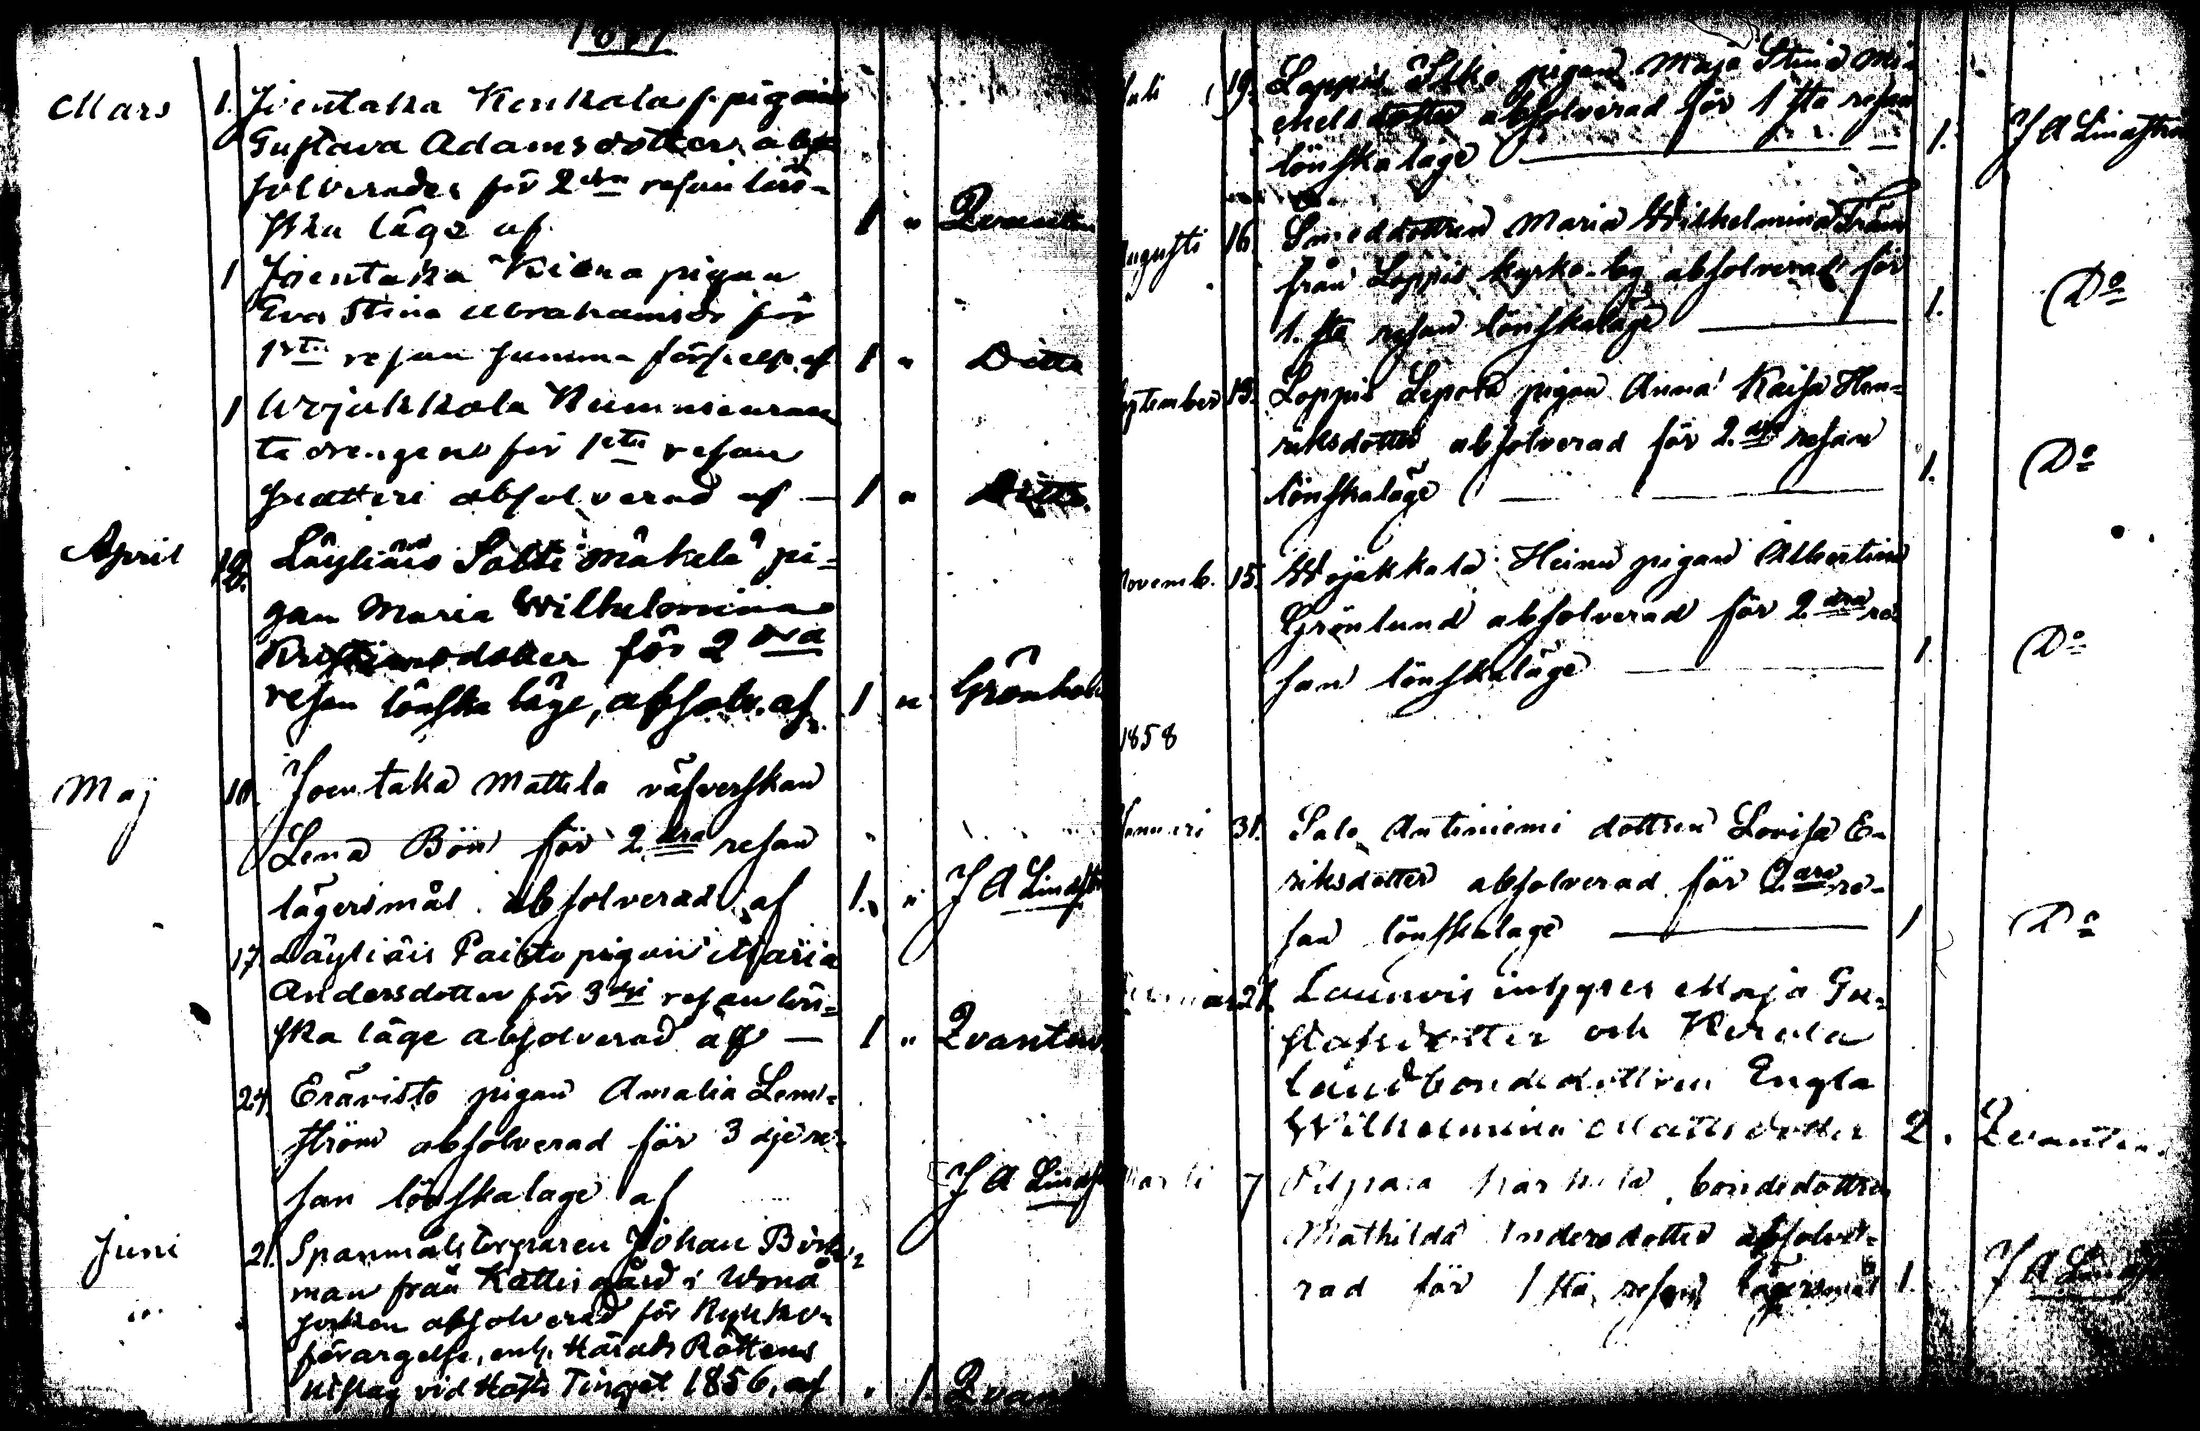 1857
Mars 1. Joentaka Kenkala f. pigan
Gustava Adamsdotter ab-
solverades för 2dra resan lön-
ska läge af 1 " Zvanten
1 Joentaka Kiena pigan
Eva Stina Abrahamsdr för
1sta resan samma förseelse af 1 " Ditto
1 Wojakkola
ta drengen för 1sta resan
snatteri absolverad af — 1 " Ditto
April 19. Läyliäis Sotti Mäkelä pi-
gan Maria Wilhelmina
Kristiansdotter för 2dra
resan lönska läge, absolv. af 1 " Grönhol
Maj 10. Joentaka Mattila väfverskan
Lena Bön för 2dra resan
lägersmål absolverad af 1. " J A Lindst
17. Läyliäis Paisto pigan Maria
Andersdotter för 3dje resan lön-
ska läge absolverad af — 1 " Zvanten
24. Erävisto pigan Amalia Lem-
ström absolverad för 3dje re-
san lönskalage af J A Lindst
Juni 21. Spanmåls torparen Johan Björk-
man från Kattis gård i Urnd
socken absolverad för Kyrko-
förargelse, enl. Härads Rättens
utslag vid Höste Tinget 1856, af " 1. Zvan
Juli 19. Loppis Ilko pigan Maja Stina Mi-
chelsdotter absolverad för 1sta resan
lönskaläge — 1. J A Lindströ
Augusti 16. Smeddottren Maria Wilhelmina Fram
från Loppis kyrko by absolverad för
1.sta resan lönskaläge — 1. Do
September 13. Loppis Lepola pigan Anna Kaisa Hen-
riksdotter absolverad för 2.dra resan
lönskaläge — 1. Do
Novemb. 15. Wojakkala Heinu pigan Albertina
Grönlund absolverad för 2dra re-
san lönskaläge — 1. Do
1858
Januari 31. Salo Antiniemi dottren Lovisa E-
riksdotter absolverad för 2dra re-
san lönskalage — 1 Do
21. Launois inhyses Maja Gu-
stafsdotter och Kerola
landbondedottren Engla
Wilhelmina Mattsdotter 2 . Zvanten.
Martii 7 Pilpala härkälä, bondedottren
Mathilda Andersdotter absolve-
rad för 1sta resan lägersmål 1. J A Lindst